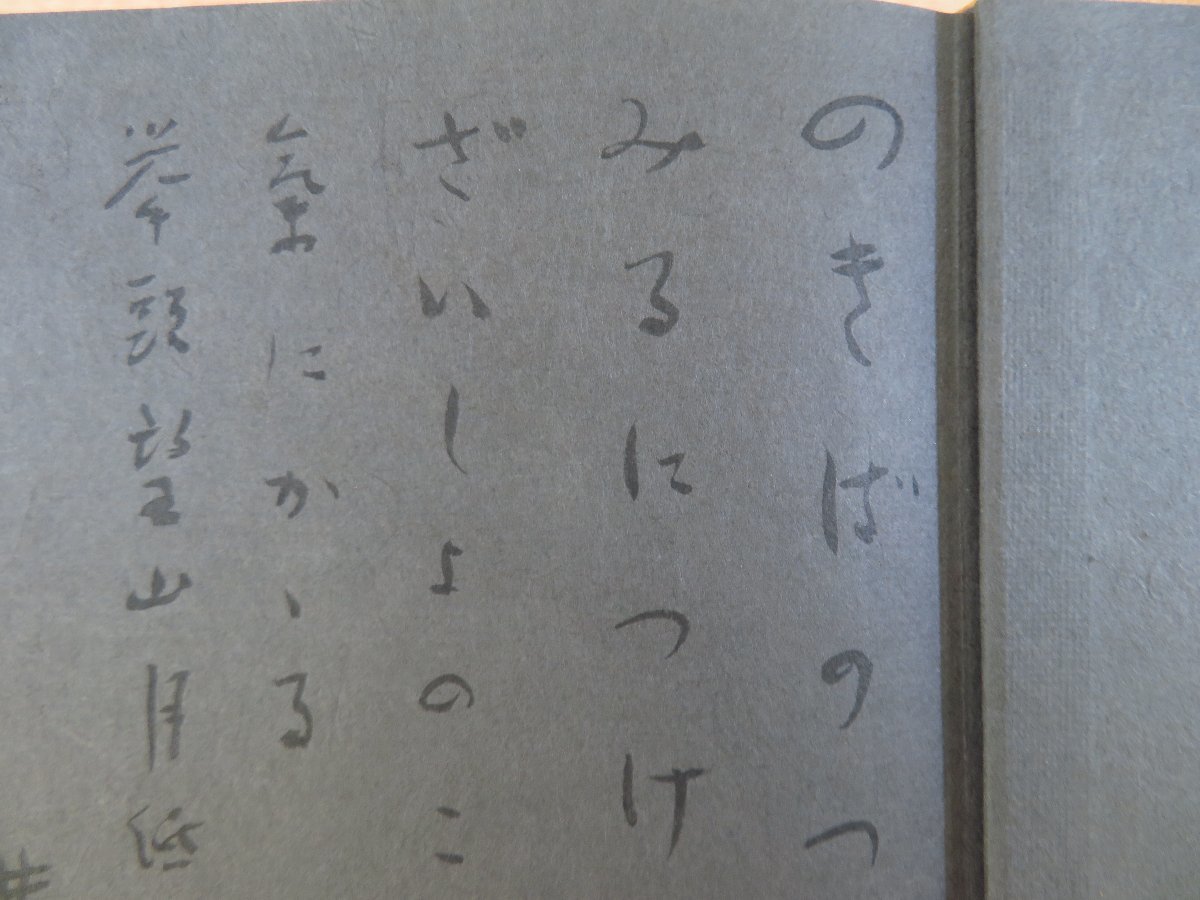 のきばのつ
みるにつけ
ざいしよのこ
氣にかゝる
挙頭望山月低